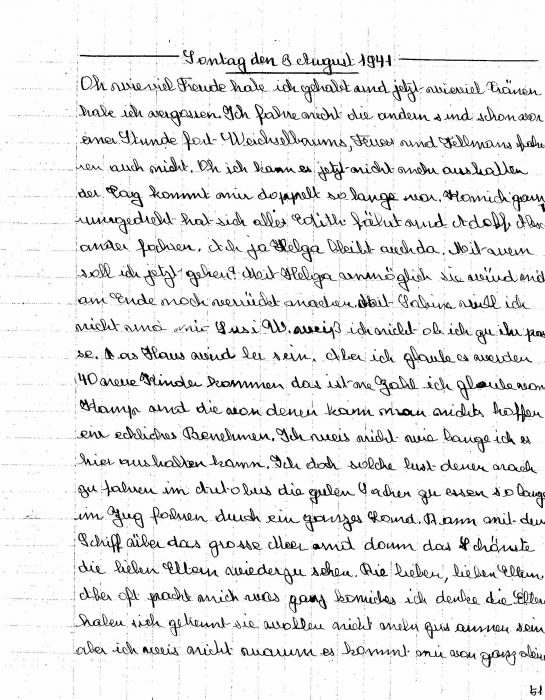 Sontag den 3 August 1941
Oh wieviel Freude habe ich gehabt und jetzt wieviel Tränen
habe ich vergossen. Ich fahre nicht die andern sind schon vor
einer Stunde fort Weichselbaums, Feuer und Fellmans fah
ren auch nicht. Oh ich kann es jetzt nicht mehr aushalten
der Tag kommt mir doppelt so lange vor. Komich ganz
umgedreht hat sich alles Edith fährt und Adolf,
ander fahren. Ach ja Helga bleibt auch da. Mit wem
soll ich jetzt gehen? Mit Helga unmöglich sie würd mich
am Ende noch verrückt machen. Mit Sabine will ich
nicht und mir Susi W. weiß ich nicht ob ich zu ihr pas
se. Das Haus wird ler sein. Aber ich glaube es werden
40 neue Kinder kommen das ist ne Zahl ich glaube von
und die von denen kann man nichts hoffen
ein eckliches Benehmen. Ich weis nicht wie lange ich es
hier aushalten kann. Ich doch solche lust dener nach
zu fahren im Autobus die guten Sachen zu essen so lange
im Zug fahren durch ein ganzes Land. Dann mit den
Schiff aüber das grosse Meer und dann das Schönste
die lieben Eltern wiederzu sehen. Die lieben, lieben Eltern,
Aber oft packt mich was ganz komiches ich denke die Eltern
haben sich getrennt sie wollen nicht mehr zus ammen sein
aber ich weis nicht warum es kommt mir von ganz allein
51